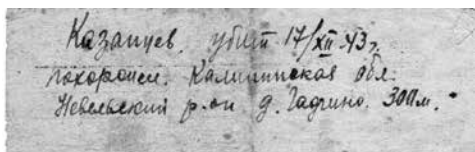 Казанцев. убит 17/XII-43 г.
похоронен. Калининская обл.
Невельский р-он д. Гадрино. 300 м.